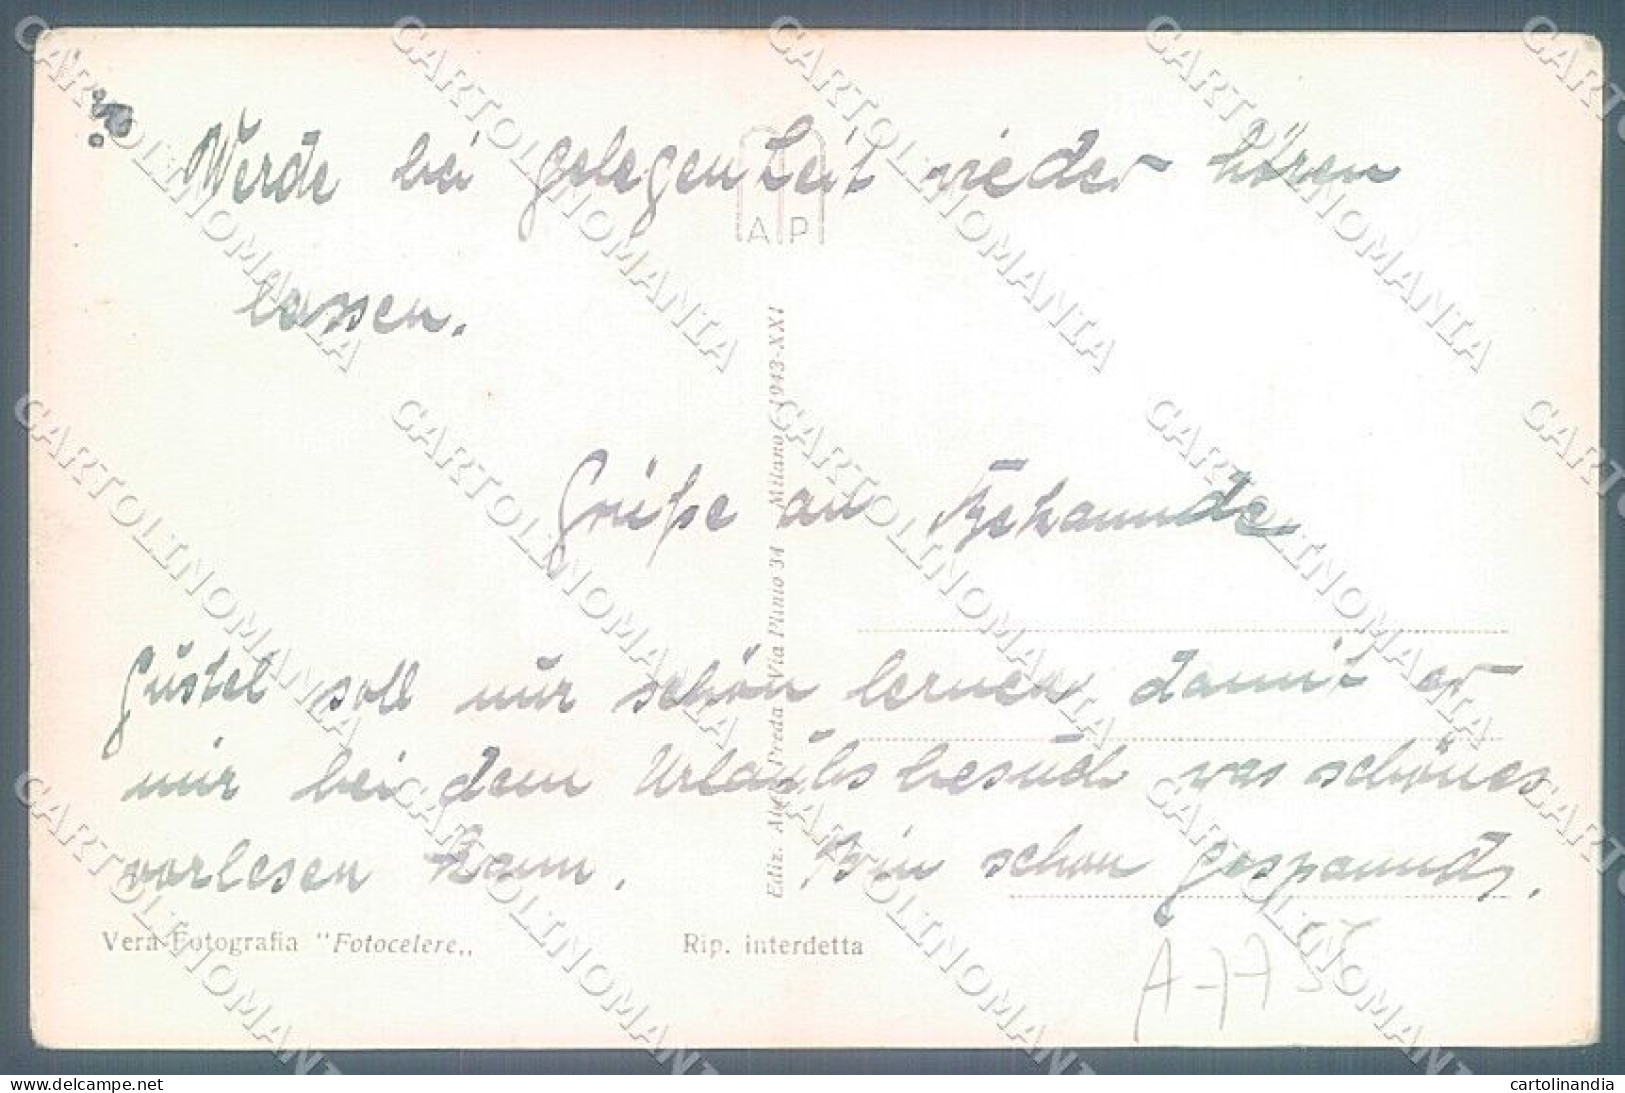 Werde bei gelegenheit wieder hören
A P
lassen.
Grüße an Bekannde
Güstel soll nur schön lernen damit er
mir bei dem Urlaubsbesuch was schönes
vorlesen kann. Bin schon gespannd.
Ediz. Preda Via Plinio 34 Milano 1943-XXI
Vera Fotografia "Fotocelere„ Rip. interdetta
CARTOLINOMANIA
delcampe.net
cartolinandia